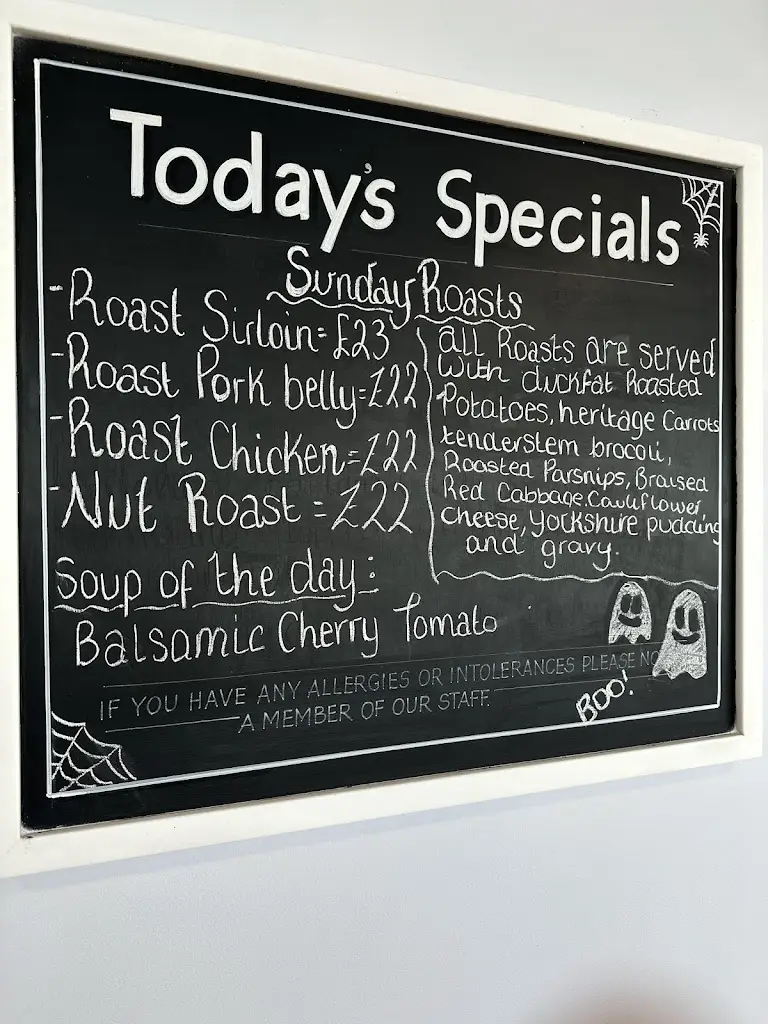 Today's Specials
Sunday Roasts
-Roast Sirloin=£23
-Roast Pork belly=£22
-Roast Chicken=£22
-Nut Roast =£22
all Roasts are served
with duckfat Roasted
Potatoes, heritage Carrots
tenderstem brocoli,
Roasted Parsnips, Braised
Red Cabbage, Cauliflower
cheese, yorkshire pudding
and gravy.
Soup of the day:
Balsamic Cherry Tomato
IF YOU HAVE ANY ALLERGIES OR INTOLERANCES PLEASE NO
A MEMBER OF OUR STAFF.
BOO!